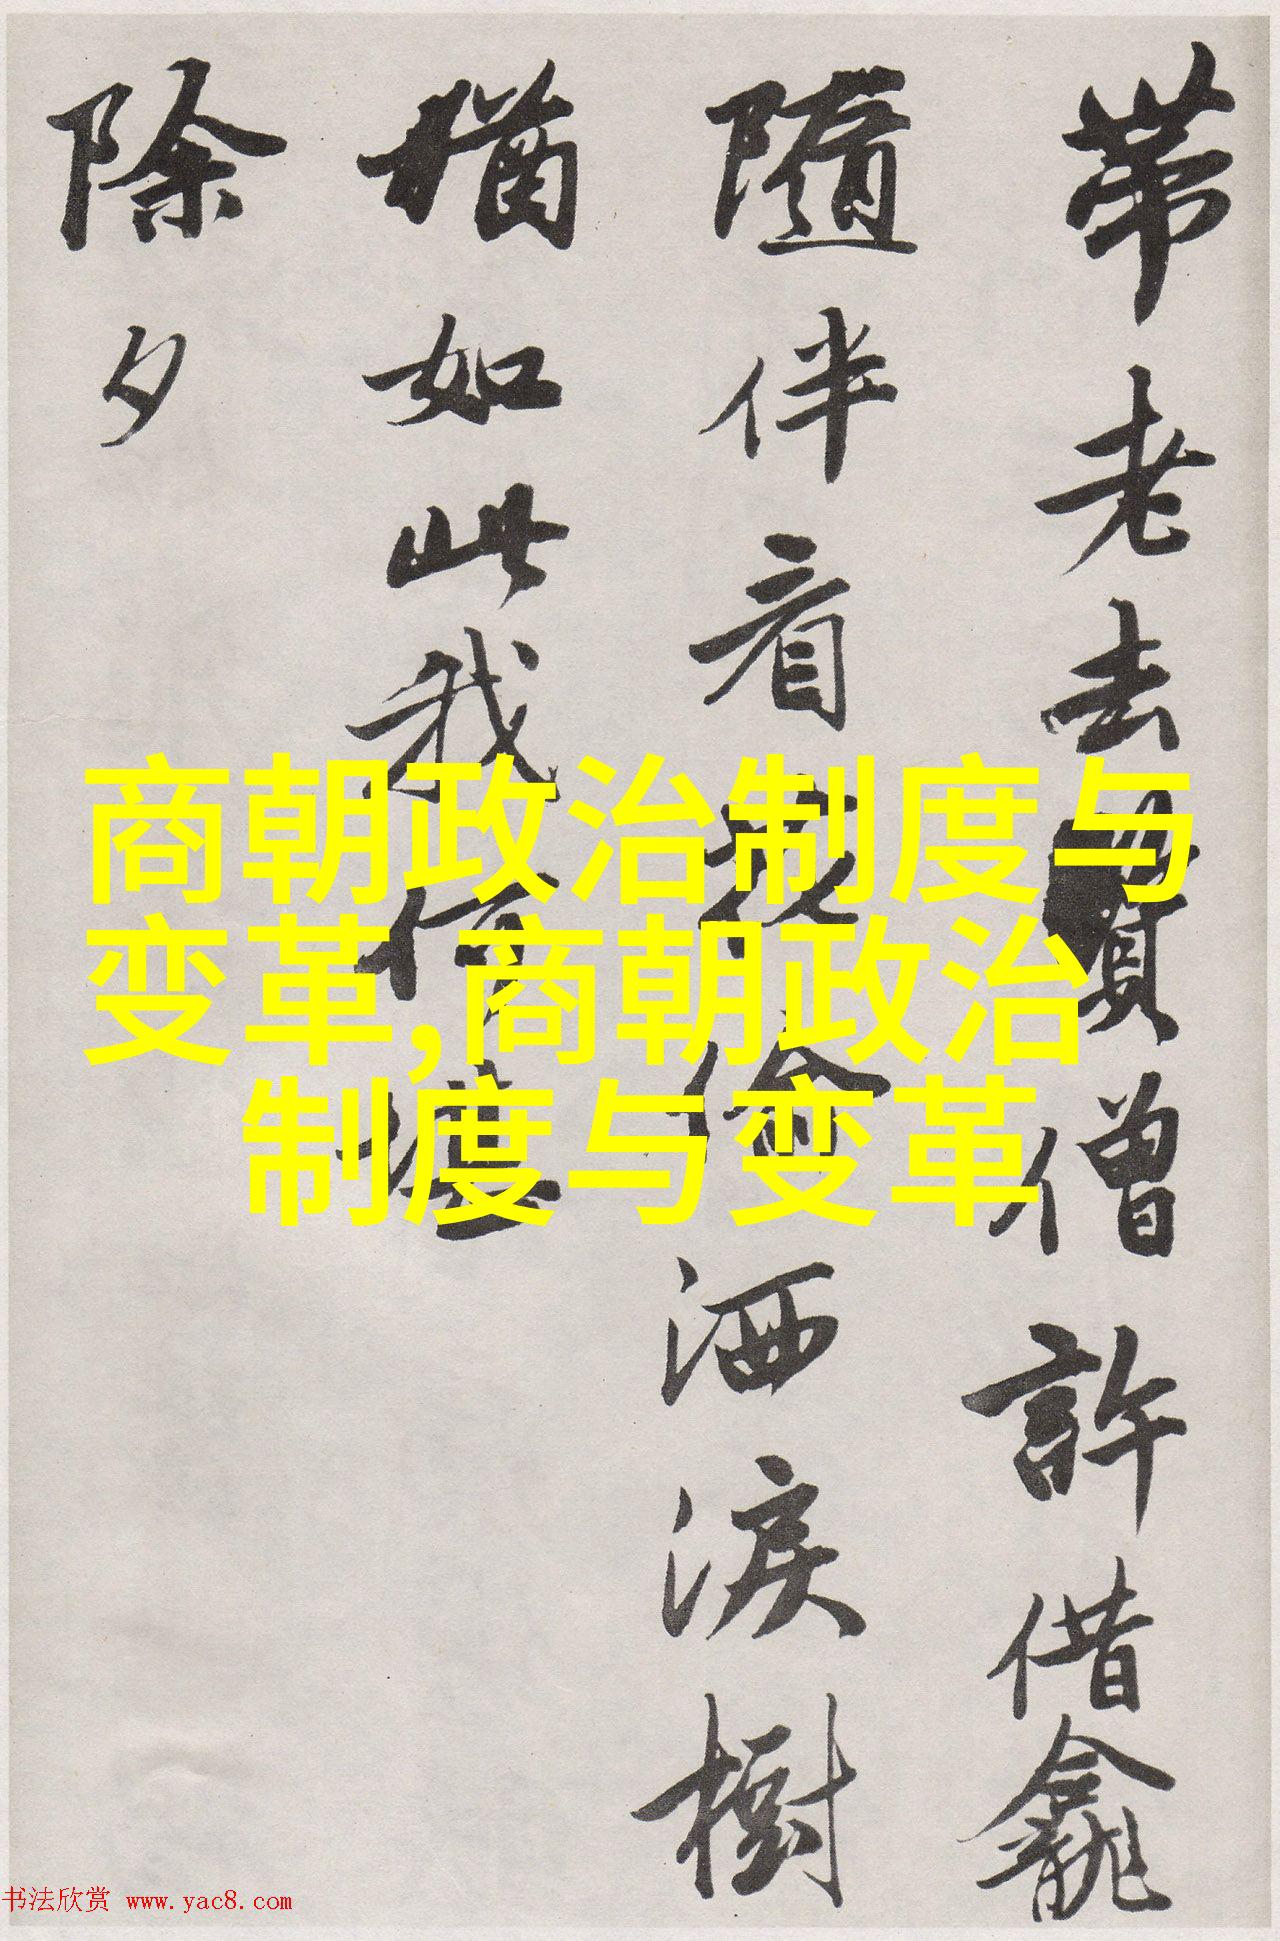 帶老去僧許借龕
隨伴看花偷洒淚樹
猶如此我何堪
除夕
商朝政治制度与
变革,商朝政治
制度与变革
书法欣赏 www.yac8.com